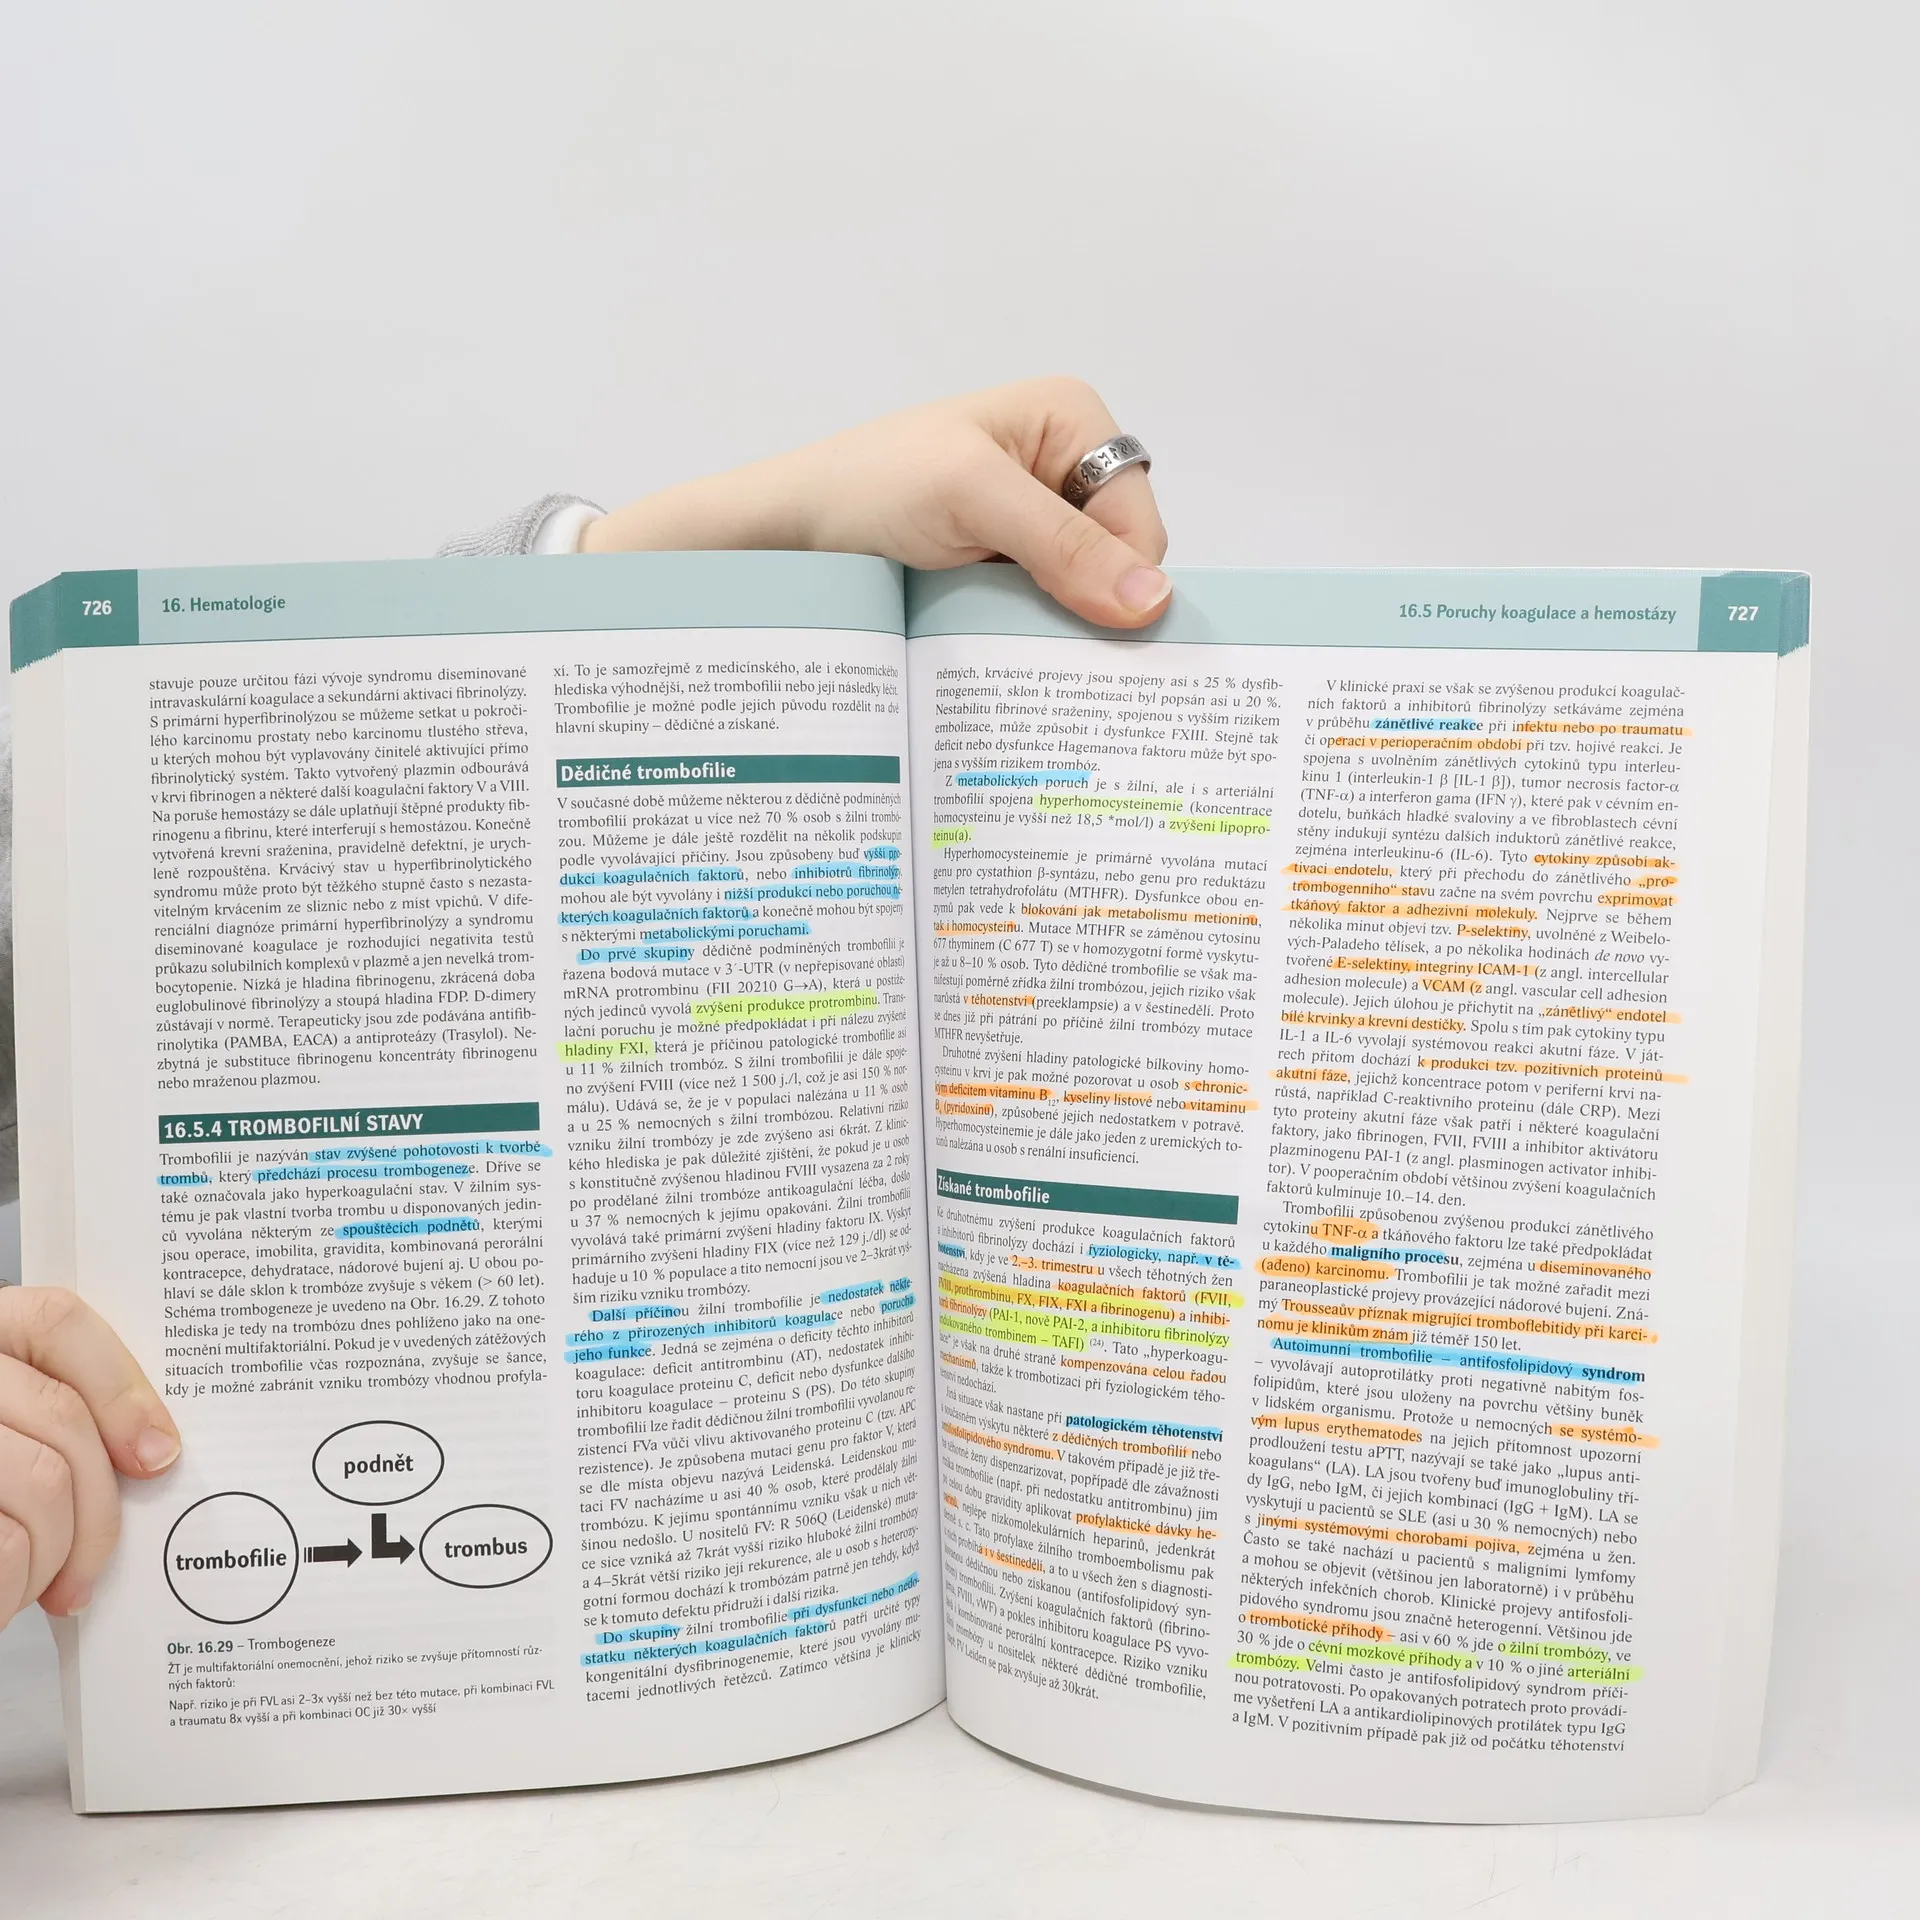 726
16. Hematologie
stavuje pouze určitou fázi vývoje syndromu diseminované
intravaskulární koagulace a sekundární aktivaci fibrinolýzy.
S primární hyperfibrinolýzou se můžeme setkat u pokroči-
lého karcinomu prostaty nebo karcinomu tlustého střeva,
u kterých mohou být vyplavovány činitelé aktivující přímo
fibrinolytický systém. Takto vytvořený plazmin odbourává
v krvi fibrinogen a některé další koagulační faktory V a VIII.
Na poruše hemostázy se dále uplatňují štěpné produkty fib-
rinogenu a fibrinu, které interferují s hemostázou. Konečně
vytvořená krevní sraženina, pravidelně defektní, je urych-
leně rozpouštěna. Krvácivý stav u hyperfibrinolytického
syndromu může proto být těžkého stupně často s nezasta-
vitelným krvácením ze sliznic nebo z míst vpichů. V dife-
renciální diagnóze primární hyperfibrinolýzy a syndromu
diseminované koagulace je rozhodující negativita testů
průkazu solubilních komplexů v plazmě a jen nevelká trom-
bocytopenie. Nízká je hladina fibrinogenu, zkrácená doba
euglobulinové fibrinolýzy a stoupá hladina FDP. D-dimery
zůstávají v normě. Terapeuticky jsou zde podávána antifib-
rinolytika (PAMBA, EACA) a antiproteázy (Trasylol). Ne-
zbytná je substituce fibrinogenu koncentráty fibrinogenu
nebo mraženou plazmou.
16.5.4 TROMBOFILNÍ STAVY
Trombofilií je nazýván stav zvýšené pohotovosti k tvorbě
trombů, který předchází procesu trombogeneze. Dříve se
také označovala jako hyperkoagulační stav. V žilním sys-
tému je pak vlastní tvorba trombu u disponovaných jedin-
ců vyvolána některým ze spouštěcích podnětů, kterými
jsou operace, imobilita, gravidita, kombinovaná perorální
kontracepce, dehydratace, nádorové bujení aj. U obou po-
hlaví se dále sklon k trombóze zvyšuje s věkem (> 60 let).
Schéma trombogeneze je uvedeno na Obr. 16.29. Z tohoto
hlediska je tedy na trombózu dnes pohlíženo jako na one-
mocnění multifaktoriální. Pokud je v uvedených zátěžových
situacích trombofilie včas rozpoznána, zvyšuje se šance,
kdy je možné zabránit vzniku trombózy vhodnou profyla-
podnět
trombofilie
trombus
Obr. 16.29 – Trombogeneze
ŽT je multifaktoriální onemocnění, jehož riziko se zvyšuje přítomností růz-
ných faktorů:
Např. riziko je při FVL asi 2–3x vyšší než bez této mutace, při kombinaci FVL
a traumatu 8x vyšší a při kombinaci OC již 30× vyšší
xí. To je samozřejmě z medicínského, ale i ekonomického
hlediska výhodnější, než trombofilii nebo její následky léčit.
Trombofilie je možné podle jejich původu rozdělit na dvě
hlavní skupiny – dědičné a získané.
Dědičné trombofilie
V současné době můžeme některou z dědičně podmíněných
trombofilií prokázat u více než 70 % osob s žilní trombó-
zou. Můžeme je dále ještě rozdělit na několik podskupin
podle vyvolávající příčiny. Jsou způsobeny buď vyšší pro-
dukcí koagulačních faktorů, nebo inhibiotrů fibrinolýzy,
mohou ale být vyvolány i nižší produkcí nebo poruchou ně-
kterých koagulačních faktorů a konečně mohou být spojeny
s některými metabolickými poruchami.
Do prvé skupiny dědičně podmíněných trombofilií je
řazena bodová mutace v 3´-UTR (v nepřepisované oblasti)
mRNA protrombinu (FII 20210 G→A), která u postiže-
ných jedinců vyvolá zvýšení produkce protrombinu. Trans-
lační poruchu je možné předpokládat i při nálezu zvýšené
hladiny FXI, která je příčinou patologické trombofilie asi
u 11 % žilních trombóz. S žilní trombofilií je dále spoje-
no zvýšení FVIII (více než 1 500 j./l, což je asi 150 % nor-
málu). Udává se, že je v populaci nalézána u 11 % osob
a u 25 % nemocných s žilní trombózou. Relativní riziko
vzniku žilní trombózy je zde zvýšeno asi 6krát. Z klinic-
kého hlediska je pak důležité zjištění, že pokud je u osob
s konstitučně zvýšenou hladinou FVIII vysazena za 2 roky
po prodělané žilní trombóze antikoagulační léčba, došlo
u 37 % nemocných k jejímu opakování. Žilní trombofilii
vyvolává také primární zvýšení hladiny faktoru IX. Výskyt
primárního zvýšení hladiny FIX (více než 129 j./dl) se od-
haduje u 10 % populace a tito nemocní jsou ve 2–3krát vyš-
ším riziku vzniku trombózy.
Další příčinou žilní trombofilie je nedostatek někte-
rého z přirozených inhibitorů koagulace nebo porucha
jeho funkce. Jedná se zejména o deficity těchto inhibitorů
koagulace: deficit antitrombinu (AT), nedostatek inhibi-
toru koagulace proteinu C, deficit nebo dysfunkce dalšího
inhibitoru koagulace – proteinu S (PS). Do této skupiny
trombofilií lze řadit dědičnou žilní trombofilii vyvolanou re-
zistencí FVa vůči vlivu aktivovaného proteinu C (tzv. APC
rezistence). Je způsobena mutací genu pro faktor V, která
se dle místa objevu nazývá Leidenská. Leidenskou mu-
taci FV nacházíme u asi 40 % osob, které prodělaly žilní
trombózu. K jejímu spontánnímu vzniku však u nich vět-
šinou nedošlo. U nositelů FV: R 506Q (Leidenské) muta-
ce sice vzniká až 7krát vyšší riziko hluboké žilní trombózy
a 4–5krát větší riziko její rekurence, ale u osob s heterozy-
gotní formou dochází k trombózám patrně jen tehdy, když
se k tomuto defektu přidruží i další rizika.
Do skupiny žilní trombofilie při dysfunkci nebo nedo-
statku některých koagulačních faktorů patří určité typy
kongenitální dysfibrinogenemie, které jsou vyvolány mu-
tacemi jednotlivých řetězců. Zatímco většina je klinicky
16.5 Poruchy koagulace a hemostázy
727
němých, krvácivé projevy jsou spojeny asi s 25 % dysfib-
rinogenemií, sklon k trombotizaci byl popsán asi u 20 %.
Nestabilitu fibrinové sraženiny, spojenou s vyšším rizikem
embolizace, může způsobit i dysfunkce FXIII. Stejně tak
deficit nebo dysfunkce Hagemanova faktoru může být spo-
jena s vyšším rizikem trombóz.
Z metabolických poruch je s žilní, ale i s arteriální
trombofilií spojena hyperhomocysteinemie (koncentrace
homocysteinu je vyšší než 18,5 *mol/l) a zvýšení lipopro-
teinu(a).
Hyperhomocysteinemie je primárně vyvolána mutací
genu pro cystathion β-syntázu, nebo genu pro reduktázu
metylen tetrahydrofolátu (MTHFR). Dysfunkce obou en-
zymů pak vede k blokování jak metabolismu metioninu,
tak i homocysteinu. Mutace MTHFR se záměnou cytosinu
677 thyminem (C 677 T) se v homozygotní formě vyskytu-
je až u 8–10 % osob. Tyto dědičné trombofilie se však ma-
nifestují poměrně zřídka žilní trombózou, jejich riziko však
narůstá v těhotenství (preeklampsie) a v šestinedělí. Proto
se dnes již při pátrání po příčině žilní trombózy mutace
MTHFR nevyšetřuje.
Druhotné zvýšení hladiny patologické bílkoviny homo-
cysteinu v krvi je pak možné pozorovat u osob s chronic-
kým deficitem vitaminu B12, kyseliny listové nebo vitaminu
B6 (pyridoxinu), způsobené jejich nedostatkem v potravě.
Hyperhomocysteinemie je dále jako jeden z uremických to-
xinů nalézána u osob s renální insuficiencí.
Získané trombofilie
Ke druhotnému zvýšení produkce koagulačních faktorů
a inhibitorů fibrinolýzy dochází i fyziologicky, např. v tě-
hotenství, kdy je ve 2.–3. trimestru u všech těhotných žen
nacházena zvýšená hladina koagulačních faktorů (FVII,
FVIII, prothrombinu, FX, FIX, FXI a fibrinogenu) a inhibi-
torů fibrinolýzy (PAI-1, nově PAI-2, a inhibitoru fibrinolýzy
indukovaného trombinem – TAFI) (24). Tato „hyperkoagu-
lace“ je však na druhé straně kompenzována celou řadou
mechanismů, takže k trombotizaci při fyziologickém těho-
tenství nedochází.
Jiná situace však nastane při patologickém těhotenství
a současném výskytu některé z dědičných trombofilií nebo
antifosfolipidového syndromu. V takovém případě je již tře-
ba těhotné ženy dispenzarizovat, popřípadě dle závažnosti
rizika trombofilie (např. při nedostatku antitrombinu) jim
po celou dobu gravidity aplikovat profylaktické dávky he-
parinů, nejlépe nízkomolekulárních heparinů, jedenkrát
denně s. c. Tato profylaxe žilního tromboembolismu pak
u nich probíhá i v šestinedělí, a to u všech žen s diagnosti-
kovanou dědičnou nebo získanou (antifosfolipidový syn-
drom) trombofilií. Zvýšení koagulačních faktorů (fibrino-
genu, FVIII, vWF) a pokles inhibitoru koagulace PS vyvo-
lává i kombinované perorální kontracepce. Riziko vzniku
žilní trombózy u nositelek některé dědičné trombofilie,
např. FV Leiden se pak zvyšuje až 30krát.
V klinické praxi se však se zvýšenou produkcí koagulač-
ních faktorů a inhibitorů fibrinolýzy setkáváme zejména
v průběhu zánětlivé reakce při infektu nebo po traumatu
či operaci v perioperačním období při tzv. hojivé reakci. Je
spojena s uvolněním zánětlivých cytokinů typu interleu-
kinu 1 (interleukin-1 β [IL-1 β]), tumor necrosis factor-α
(TNF-α) a interferon gama (IFN γ), které pak v cévním en-
dotelu, buňkách hladké svaloviny a ve fibroblastech cévní
stěny indukují syntézu dalších induktorů zánětlivé reakce,
zejména interleukinu-6 (IL-6). Tyto cytokiny způsobí ak-
tivaci endotelu, který při přechodu do zánětlivého „pro-
trombogenního“ stavu začne na svém povrchu exprimovat
tkáňový faktor a adhezivní molekuly. Nejprve se během
několika minut objeví tzv. P-selektiny, uvolněné z Weibelo-
vých-Paladeho tělísek, a po několika hodinách de novo vy-
tvořené E-selektiny, integriny ICAM-1 (z angl. intercellular
adhesion molecule) a VCAM (z angl. vascular cell adhesion
molecule). Jejich úlohou je přichytit na „zánětlivý“ endotel
bílé krvinky a krevní destičky. Spolu s tím pak cytokiny typu
IL-1 a IL-6 vyvolají systémovou reakci akutní fáze. V ját-
rech přitom dochází k produkci tzv. pozitivních proteinů
akutní fáze, jejichž koncentrace potom v periferní krvi na-
růstá, například C-reaktivního proteinu (dále CRP). Mezi
tyto proteiny akutní fáze však patří i některé koagulační
faktory, jako fibrinogen, FVII, FVIII a inhibitor aktivátoru
plazminogenu PAI-1 (z angl. plasminogen activator inhibi-
tor). V pooperačním období většinou zvýšení koagulačních
faktorů kulminuje 10.–14. den.
Trombofilii způsobenou zvýšenou produkcí zánětlivého
cytokinu TNF-α a tkáňového faktoru lze také předpokládat
u každého maligního procesu, zejména u diseminovaného
(adeno) karcinomu. Trombofilii je tak možné zařadit mezi
paraneoplastické projevy provázející nádorové bujení. Zná-
mý Trousseaův příznak migrující tromboflebitidy při karci-
nomu je klinikům znám již téměř 150 let.
Autoimunní trombofilie – antifosfolipidový syndrom
– vyvolávají autoprotilátky proti negativně nabitým fos-
folipidům, které jsou uloženy na povrchu většiny buněk
v lidském organismu. Protože u nemocných se systémo-
vým lupus erythematodes na jejich přítomnost upozorní
prodloužení testu aPTT, nazývají se také jako „lupus anti-
koagulans“ (LA). LA jsou tvořeny buď imunoglobuliny tří-
dy IgG, nebo IgM, či jejich kombinací (IgG + IgM). LA se
vyskytují u pacientů se SLE (asi u 30 % nemocných) nebo
s jinými systémovými chorobami pojiva, zejména u žen.
Často se také nachází u pacientů s maligními lymfomy
a mohou se objevit (většinou jen laboratorně) i v průběhu
některých infekčních chorob. Klinické projevy antifosfoli-
pidového syndromu jsou značně heterogenní. Většinou jde
o trombotické příhody – asi v 60 % jde o žilní trombózy, ve
30 % jde o cévní mozkové příhody a v 10 % o jiné arteriální
trombózy. Velmi často je antifosfolipidový syndrom příči-
nou potratovosti. Po opakovaných potratech proto provádí-
me vyšetření LA a antikardiolipinových protilátek typu IgG
a IgM. V pozitivním případě pak již od počátku těhotenství